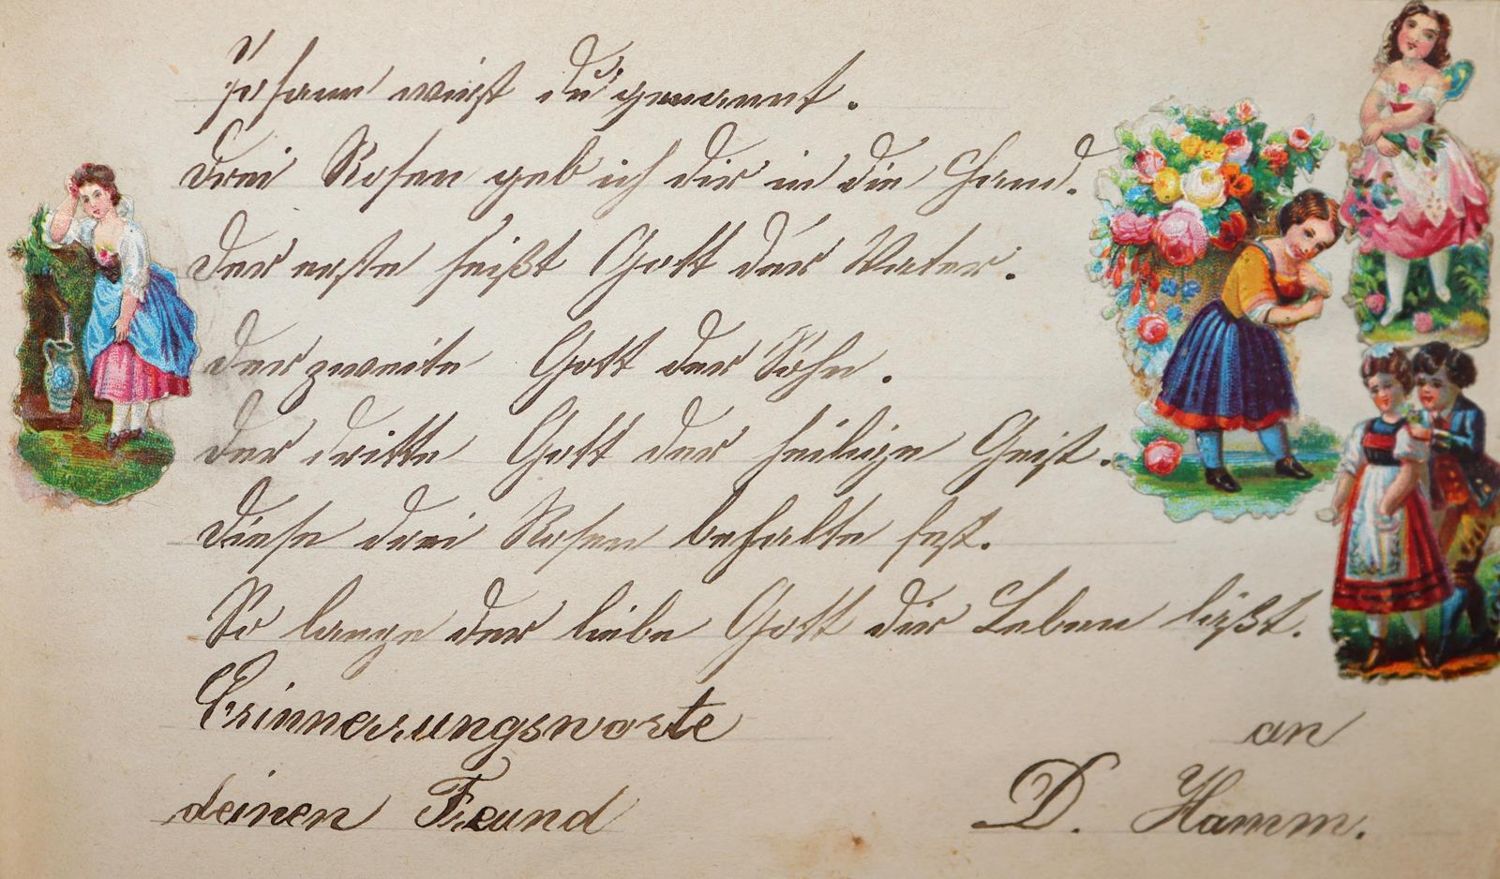 Johann wirst du genannt.
Drei Rosen geb ich dir in die Hand.
Der erste heißt Gott der Vater.
Der zweite Gott der Sohn.
Der dritte Gott der heilige Geist.
Diese drei Rosen behalte fest.
So lange der liebe Gott dir Leben läßt.
Erinnerungsworte an
deinen Freund D. Hamm.